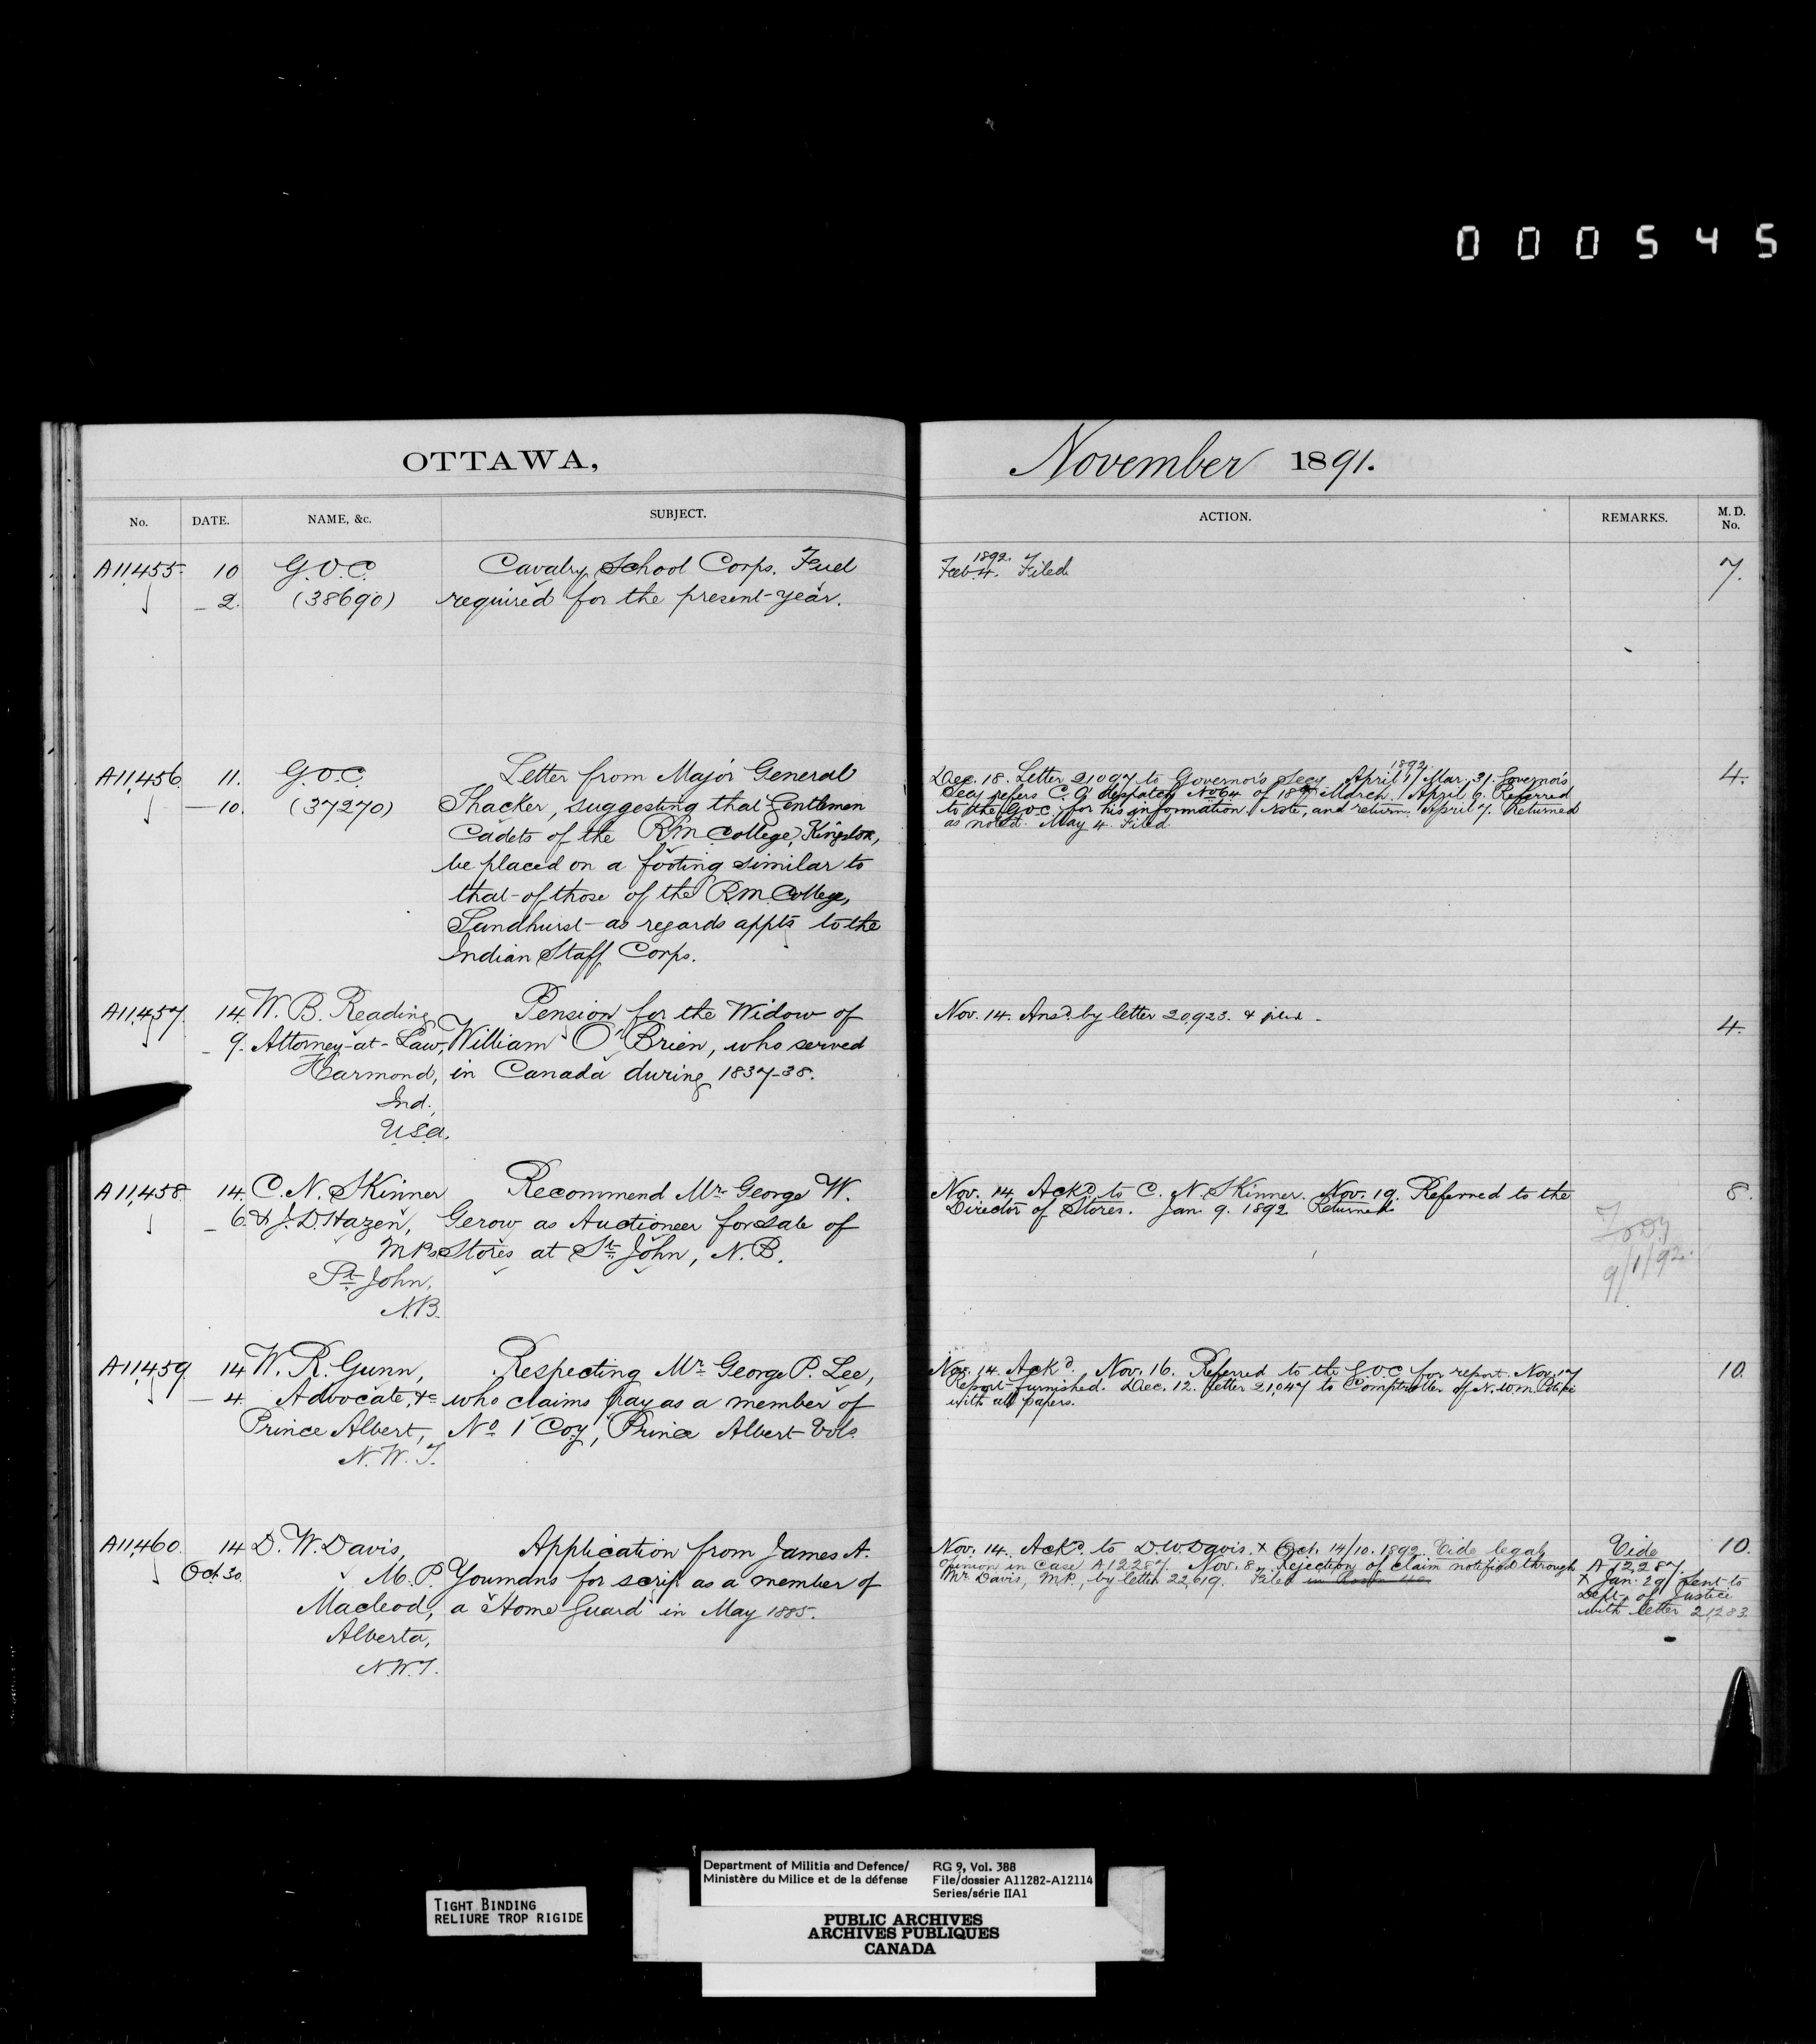 000545
OTTAWA,
November 1891.
No. DATE. NAME, &c. SUBJECT.
ACTION. REMARKS. M. D. No.
A11,455 10 G.O.C. Cavalry School Corps. Fuel
— 2. (38690) required for the present year.
1892.
Feb. 4. Filed
7.
A11,456 11. G.O.C. Letter from Major General
— 10. (37270) Thacker, suggesting that Gentlemen
Cadets of the R.M. College, Kingston,
be placed on a footing similar to
that of those of the R.M. College,
Sandhurst as regards appts to the
Indian Staff Corps.
1892.
Dec. 18. Letter 21097 to Governor's Secy April 1/Mar. 31. Governor's
Secy refers C.O. despatch No 64 of 18th March. April 6. Referred
to the G.O.C. for his information. Note, and return. April 7. Returned
as noted. May 4. Filed
4.
A11,457 14. W. B. Reading, Pension for the Widow of
— 9. Attorney-at-Law, William O'Brien, who served
Harmond, in Canada during 1837-38.
Ind.
U.S.A.
Nov. 14. Ansd. by letter 20,923. & filed
4.
A11,458 14. C. N. Skinner Recommend Mr. George W.
— 6. & J. D. Hazen, Gerow as Auctioneer for sale of
M.Ps. Stores at St. John, N.B.
St. John,
N.B.
Nov. 14. Ackd. to C. N. Skinner. Nov. 19. Referred to the
Director of Stores. Jan. 9. 1892. Returned.
9/1/92.
8.
A11,459 14 W. R. Gunn, Respecting Mr. George P. Lee,
— 4. Advocate, &c who claims pay as a member of
Prince Albert, No 1 Coy, Prince Albert Vols.
N.W.T.
Nov. 14. Ackd. Nov. 16. Referred to the G.O.C. for report. Nov. 17
Report furnished. Dec. 12. Letter 21,047 to Comptroller of N.W.M. Police
with all papers.
10.
A11,460 14 D. W. Davis, Application from James A.
Oct. 30. M.P. Youmans for scrip as a member of
Macleod, a "Home Guard" in May 1885.
Alberta,
N.W.T.
Nov. 14. Ackd. to D.W. Davis. x Oct. 14/10. 1892. Vide legal
opinion in case A12287. Nov. 8. Rejection of claim notified through
Mr. Davis, M.P., by letter 22,619. Filed
Vide
A 12,287.
x Jan. 29 Sent to
Dept. of Justice
with letter 21,283.
10.
TIGHT BINDING
RELIURE TROP RIGIDE
Department of Militia and Defence/
Ministère du Milice et de la défense
RG 9, Vol. 388
File/dossier A11282-A12114
Series/série IIA1
PUBLIC ARCHIVES
ARCHIVES PUBLIQUES
CANADA